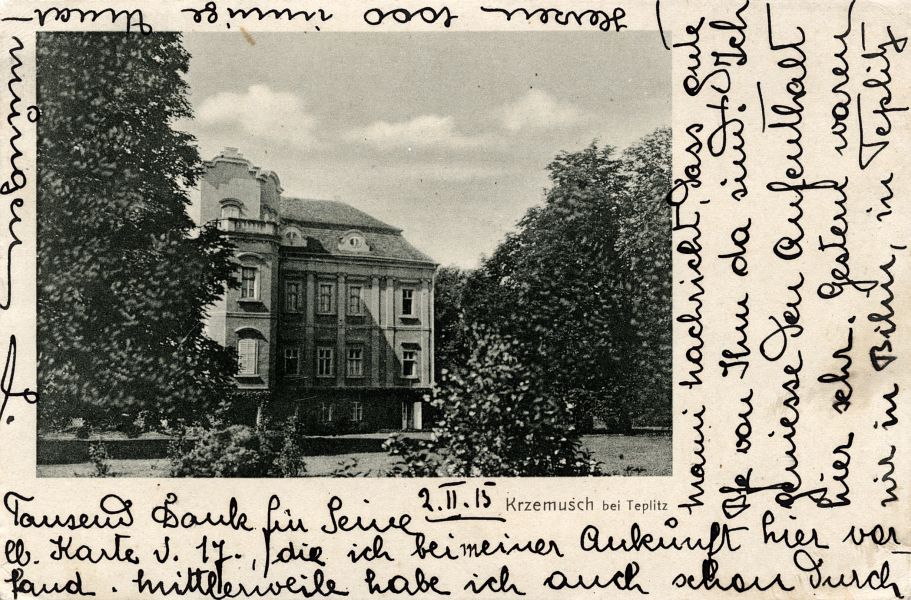 2.II.15
Krzemusch bei Teplitz
Tausend Dank für Seine
lb. Karte v. 17., die ich bei meiner Ankunft hier vor
fand. Mittlerweile habe ich auch schon durch
Mami Nachricht, dass gute
von Ihm da sind. Ich
geniesse den Aufenthalt
hier sehr. Gestern waren
wir in Bilin, in Teplitz
Herzen 1000 innige Umar
mungen